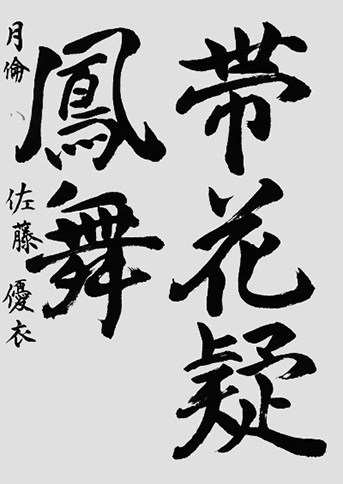 帯花疑
鳳舞
月倫 佐藤優衣